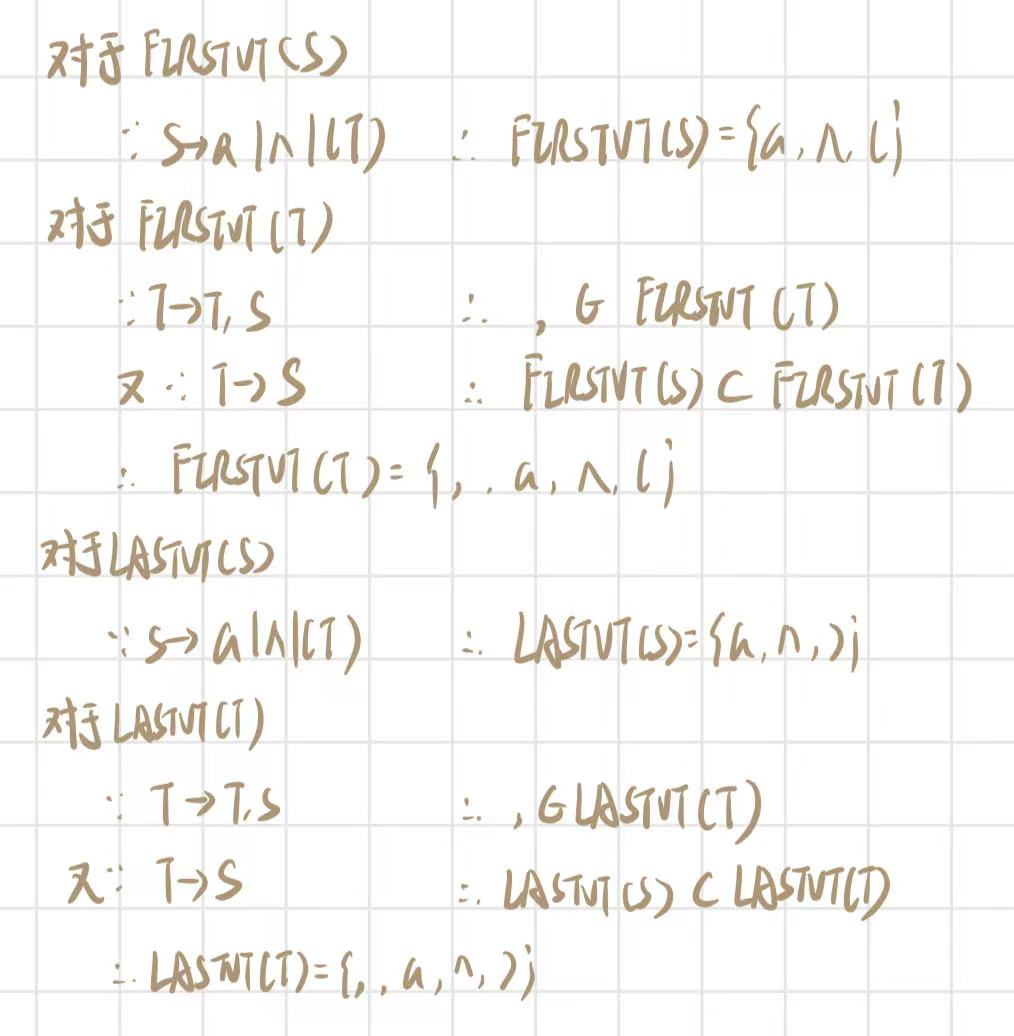 对于 FIRSTVT(S)
∵ S→a|∧|(T) ∴ FIRSTVT(S)={a,∧,(}
对于 FIRSTVT(T)
∵T→T,S ∴ , ∈ FIRSTVT(T)
又∵ T→S ∴ FIRSTVT(S)⊂ FIRSTVT(T)
∴ FIRSTVT(T)={, , a, ∧, (}
对于LASTVT(S)
∵S→a|∧|(T) ∴ LASTVT(S)={a,∧,)}
对于LASTVT(T)
∵ T→T,S ∴ ,∈LASTVT(T)
又∵ T→S ∴ LASTVT(S)⊂LASTVT(T)
∴ LASTVT(T)={, , a, ∧, )}